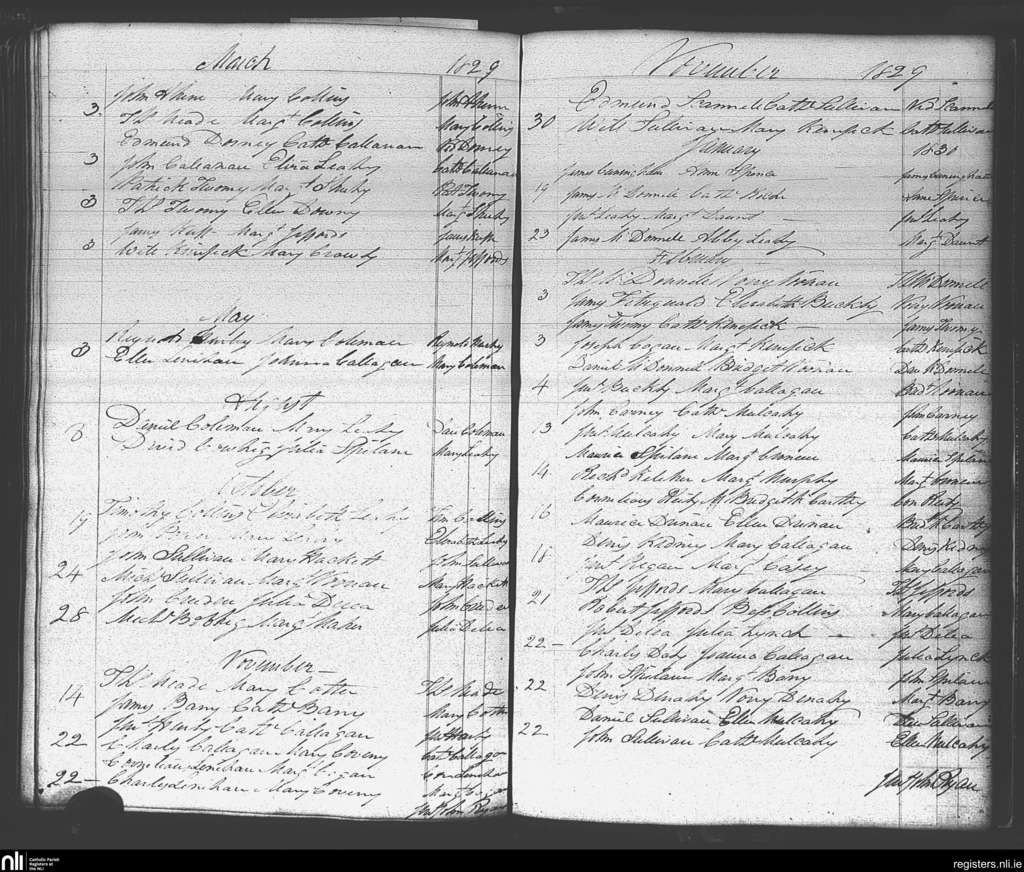 March 1829
John Ahern Mary Collins John Ahern
3 Ths Meade Margt Collins Mary Collins
Edmund Dorney Cath Callanan Ed Dorney
3 John Callanan Eliza Leahy Cath Callanan
Patrick Twomy Margt Sheehy Pat Twomy
3 Ths Twomy Ellen Downy Margt Sheehy
James Margt Jeffords James
3 Will Kinefick Mary Crowly Margt Jeffords
May
Hurly Mary Coleman Reynold Hurly
3 Ellen Lenihan Johanna Callagan Mary Coleman
August
3 Daniel Coleman Mary Leahy Dan Coleman
David Julia Spilane Mary Leahy
October
19 Timothy Collins Elizabeth Leahy Tim Collins
Mary Leahy
John Sullivan Mary Hackett John Sullivan
24 Michl Sullivan Margt Noonan Mary Hackett
John Julia Delea John
28 Michl Margt Maher Julia Delea
November
14 Ths Meade Mary Cotter Ths Meade
Jamy Barry Cath Barry Mary Cotter
Jno Hurly Cath Callagan Jno Hurly
22 Charly Callagan Mary Coveny Cath Callagan
Cornelius Lenihan Margt Con Lenihan
22 Charly Lenihan Mary Coveny Margt
John Ryan
November 1829
Edmund Scannell Cath Sullivan Ned Scannell
30 Will Sullivan Mary Kenefick Cath Sullivan
January 1830
James Cuningham Ann Spence Jamy Cuningham
19 Jamy McDonnell Cath Anne Spence
Jno Leahy Margt Daunt Jno Leahy
23 James McDonnell Abby Leahy Margt Daunt
February
Ths McDonnell Nory Noonan Th McDonnell
3 Jamy Fitzgerald Elizabeth Buckly Nory Noonan
Jamy Twomy Cath Kenefick Jamy Twomy
3 Joseph Cogan Margt Kenefick Cath Kenefick
Daniel McDonnell Bridget Noonan Dan McDonnell
4 Jno Buckly Margt Callagan Bridt Noonan
John Carney Cath Mulcahy John Carney
13 Jno Mulcahy Mary Mulcahy Cath Mulcahy
Maurice Spilane Margt Maurice Spilane
14 Richd Kelcher Margt Murphy Margt
Cornelious Bridget McCarthy Con
16 Maurice Dunau Ellen Dunau Brid McCarthy
Denis Kidney Mary Callagan Denis Kidney
18 Jno Regan Margt Casey Mary Callagan
Ths Jeffords Mary Callagan Th Jeffords
21 Robert Jeffords Bess Collins Mary Callagan
Jno Delea Julia Lynch Jno Delea
22 Charly Daly Joanna Callagan Julia Lynch
John Spilane Margt Barry John Spilane
22 Denis Denahy Nory Denahy Margt Barry
Daniel Sullivan Ellen Mulcahy Dan Sullivan
22 John Sullivan Cath Mulcahy Ellen Mulcahy
John Ryan
nli Catholic Parish
Registers at
the NLI
registers.nli.ie